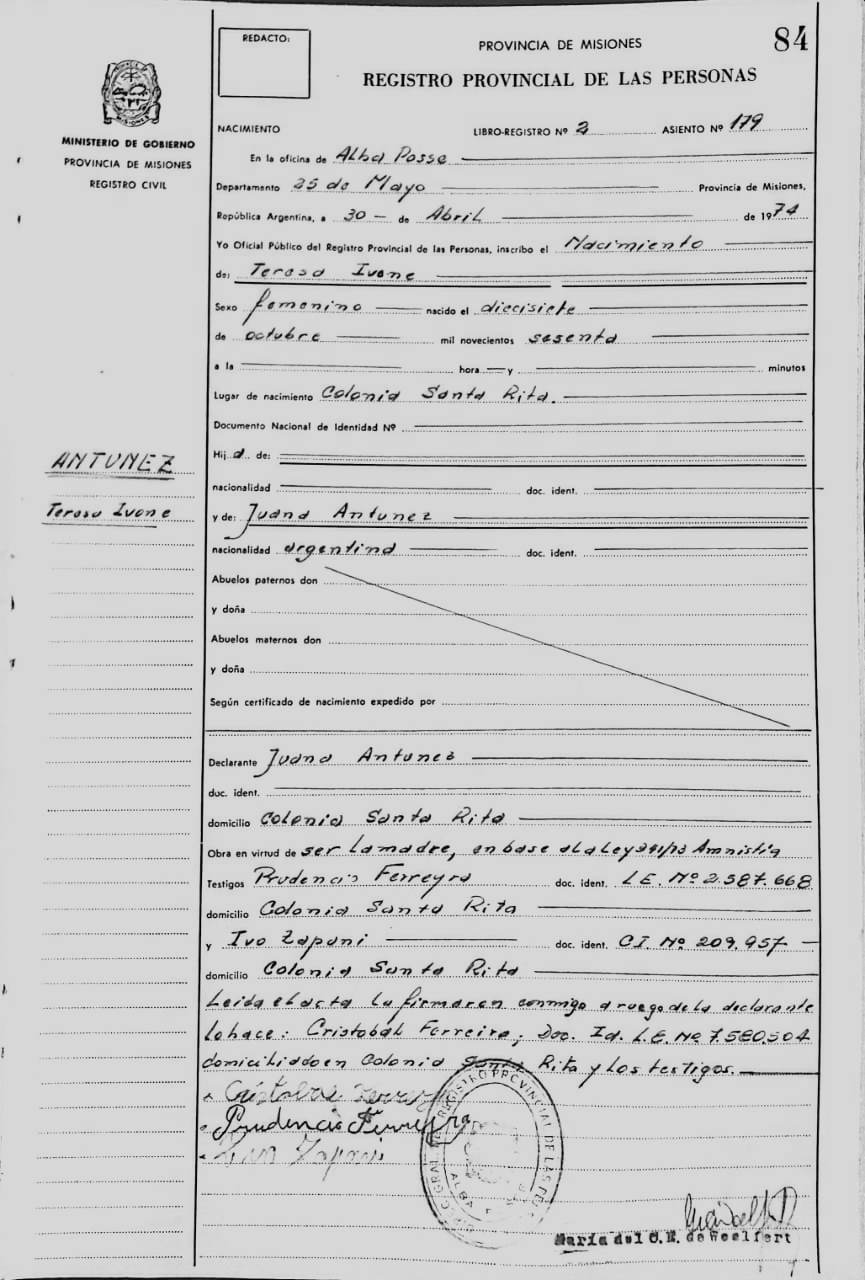 REDACTO:
PROVINCIA DE MISIONES
84
REGISTRO PROVINCIAL DE LAS PERSONAS
MINISTERIO DE GOBIERNO
PROVINCIA DE MISIONES
REGISTRO CIVIL
NACIMIENTO LIBRO-REGISTRO Nº 2 ASIENTO Nº 179
En la oficina de Alba Posse
Departamento 25 de Mayo Provincia de Misiones,
República Argentina, a 30 de Abril de 1974
Yo Oficial Público del Registro Provincial de las Personas, inscribo el Nacimiento
de: Teresa Ivone
Sexo femenino nacido el diecisiete
de octubre mil novecientos sesenta
a la hora y minutos
Lugar de nacimiento Colonia Santa Rita.
Documento Nacional de Identidad Nº
Hij a de:
ANTUNEZ
nacionalidad doc. ident.
Teresa Ivone
y de: Juana Antunez
nacionalidad argentina doc. ident.
Abuelos paternos don
y doña
Abuelos maternos don
y doña
Según certificado de nacimiento expedido por
Declarante Juana Antunez
doc. ident.
domicilio Colonia Santa Rita
Obra en virtud de ser la madre, en base a la Ley Amnistia
Testigos Prudencio Ferreyra doc. ident. L.E. Nº 2.587.668
domicilio Colonia Santa Rita
y Ivo Zapani doc. ident. C.I. Nº 209.957
domicilio Colonia Santa Rita
Leida el acta la firmaren conmigo a ruego de la declarante
lo hace: Cristobal Ferreira, Doc. Id. L.E. Nº 7.580.504
domiciliado en Colonia Santa Rita y los testigos.
Prudencio Ferreyra
REGISTRO PROVINCIAL DE LAS
ALBA
María del C. E. de Woelfert